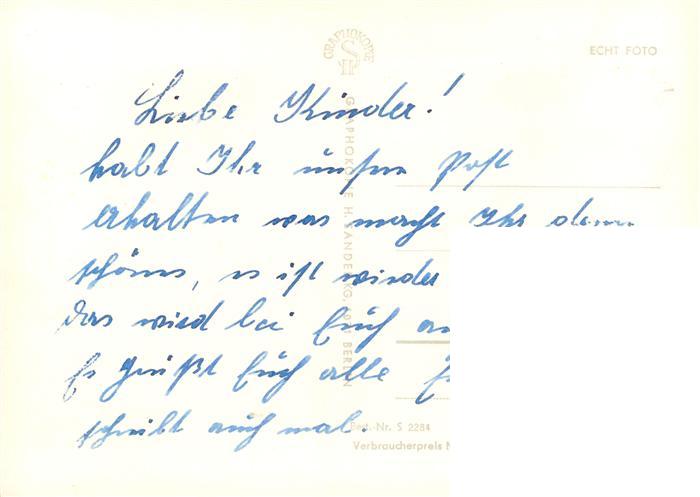 GRAPHOKOPIE
SH
ECHT FOTO
Liebe Kinder!
habt Ihr unsere Post
erhalten was macht Ihr denn
schönes, es ist wieder
das wird bei Euch
Es grüßt Euch alle
schreibt auch mal.
GRAPHOKOPIE H. SANDER KG, BERLIN
Best.-Nr. S 2284
Verbraucherpreis